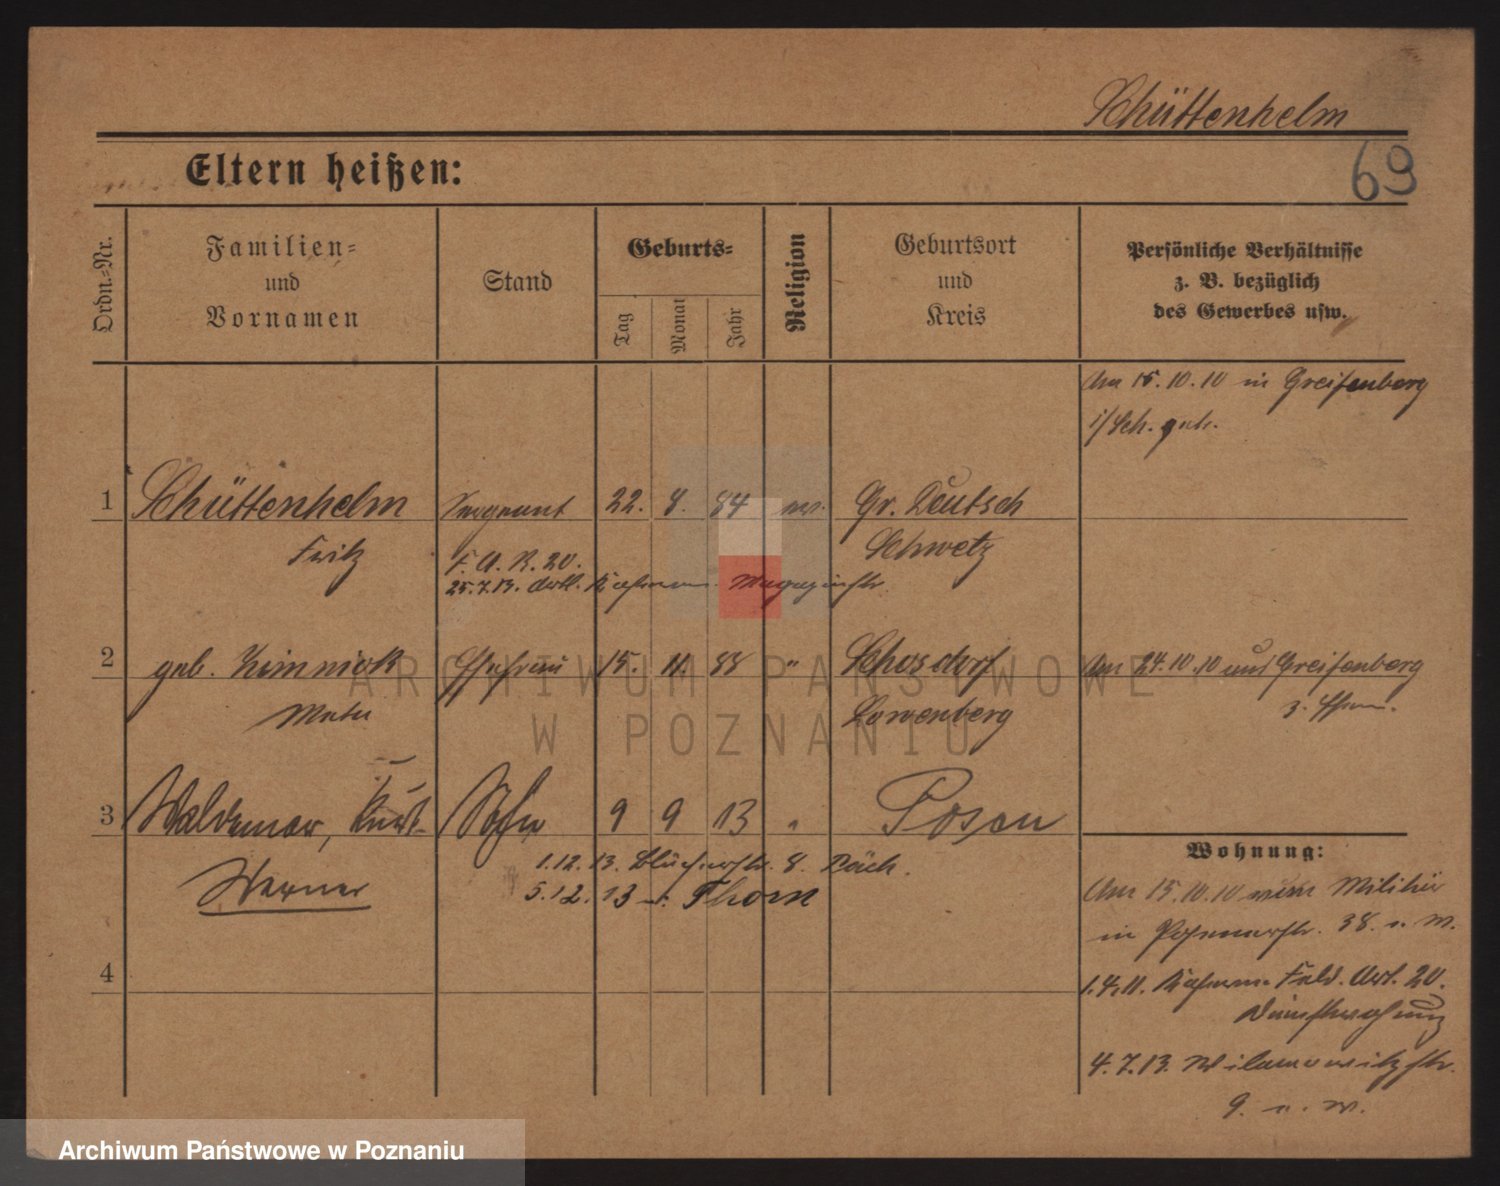 Schüttenhelm
69
Eltern heißen:
Ordn.-Nr.
Familien-
und
Vornamen
Stand
Geburts-
Tag
Monat
Jahr
Religion
Geburtsort
und
Kreis
Persönliche Verhältnisse
z. B. bezüglich
des Gewerbes usw.
Am 15.10.10 in Greifenberg
i/Sch. geh.
1 Schüttenhelm Sergeant 22. 8. 84 Gr. Deutsch
Fritz F. A. R. 20. Schwetz
25.7.13. Artl. Kasernen Magazinstr.
2 geb. Ehefrau 15. 11. 88 " Schosdorf Am 24.10.10 aus Greifenberg
Löwenberg
z. Ehem.
3 Waldemar, Kurt Sohn 9 9 13 " Posen
Werner
1.12.13. Blücherstr. 8.
5.12.13 n. Thorn
Wohnung:
Am 15.10.10 vom Militär
in Posenerstr. 38. b. W.
4
1.4.11. Kaserne Feld. Art. 20.
Dienstwohnung
4.7.13. Wilamowitzstr.
9. b. W.
ARCHIWUM PAŃSTWOWE
W POZNANIU
Archiwum Państwowe w Poznaniu